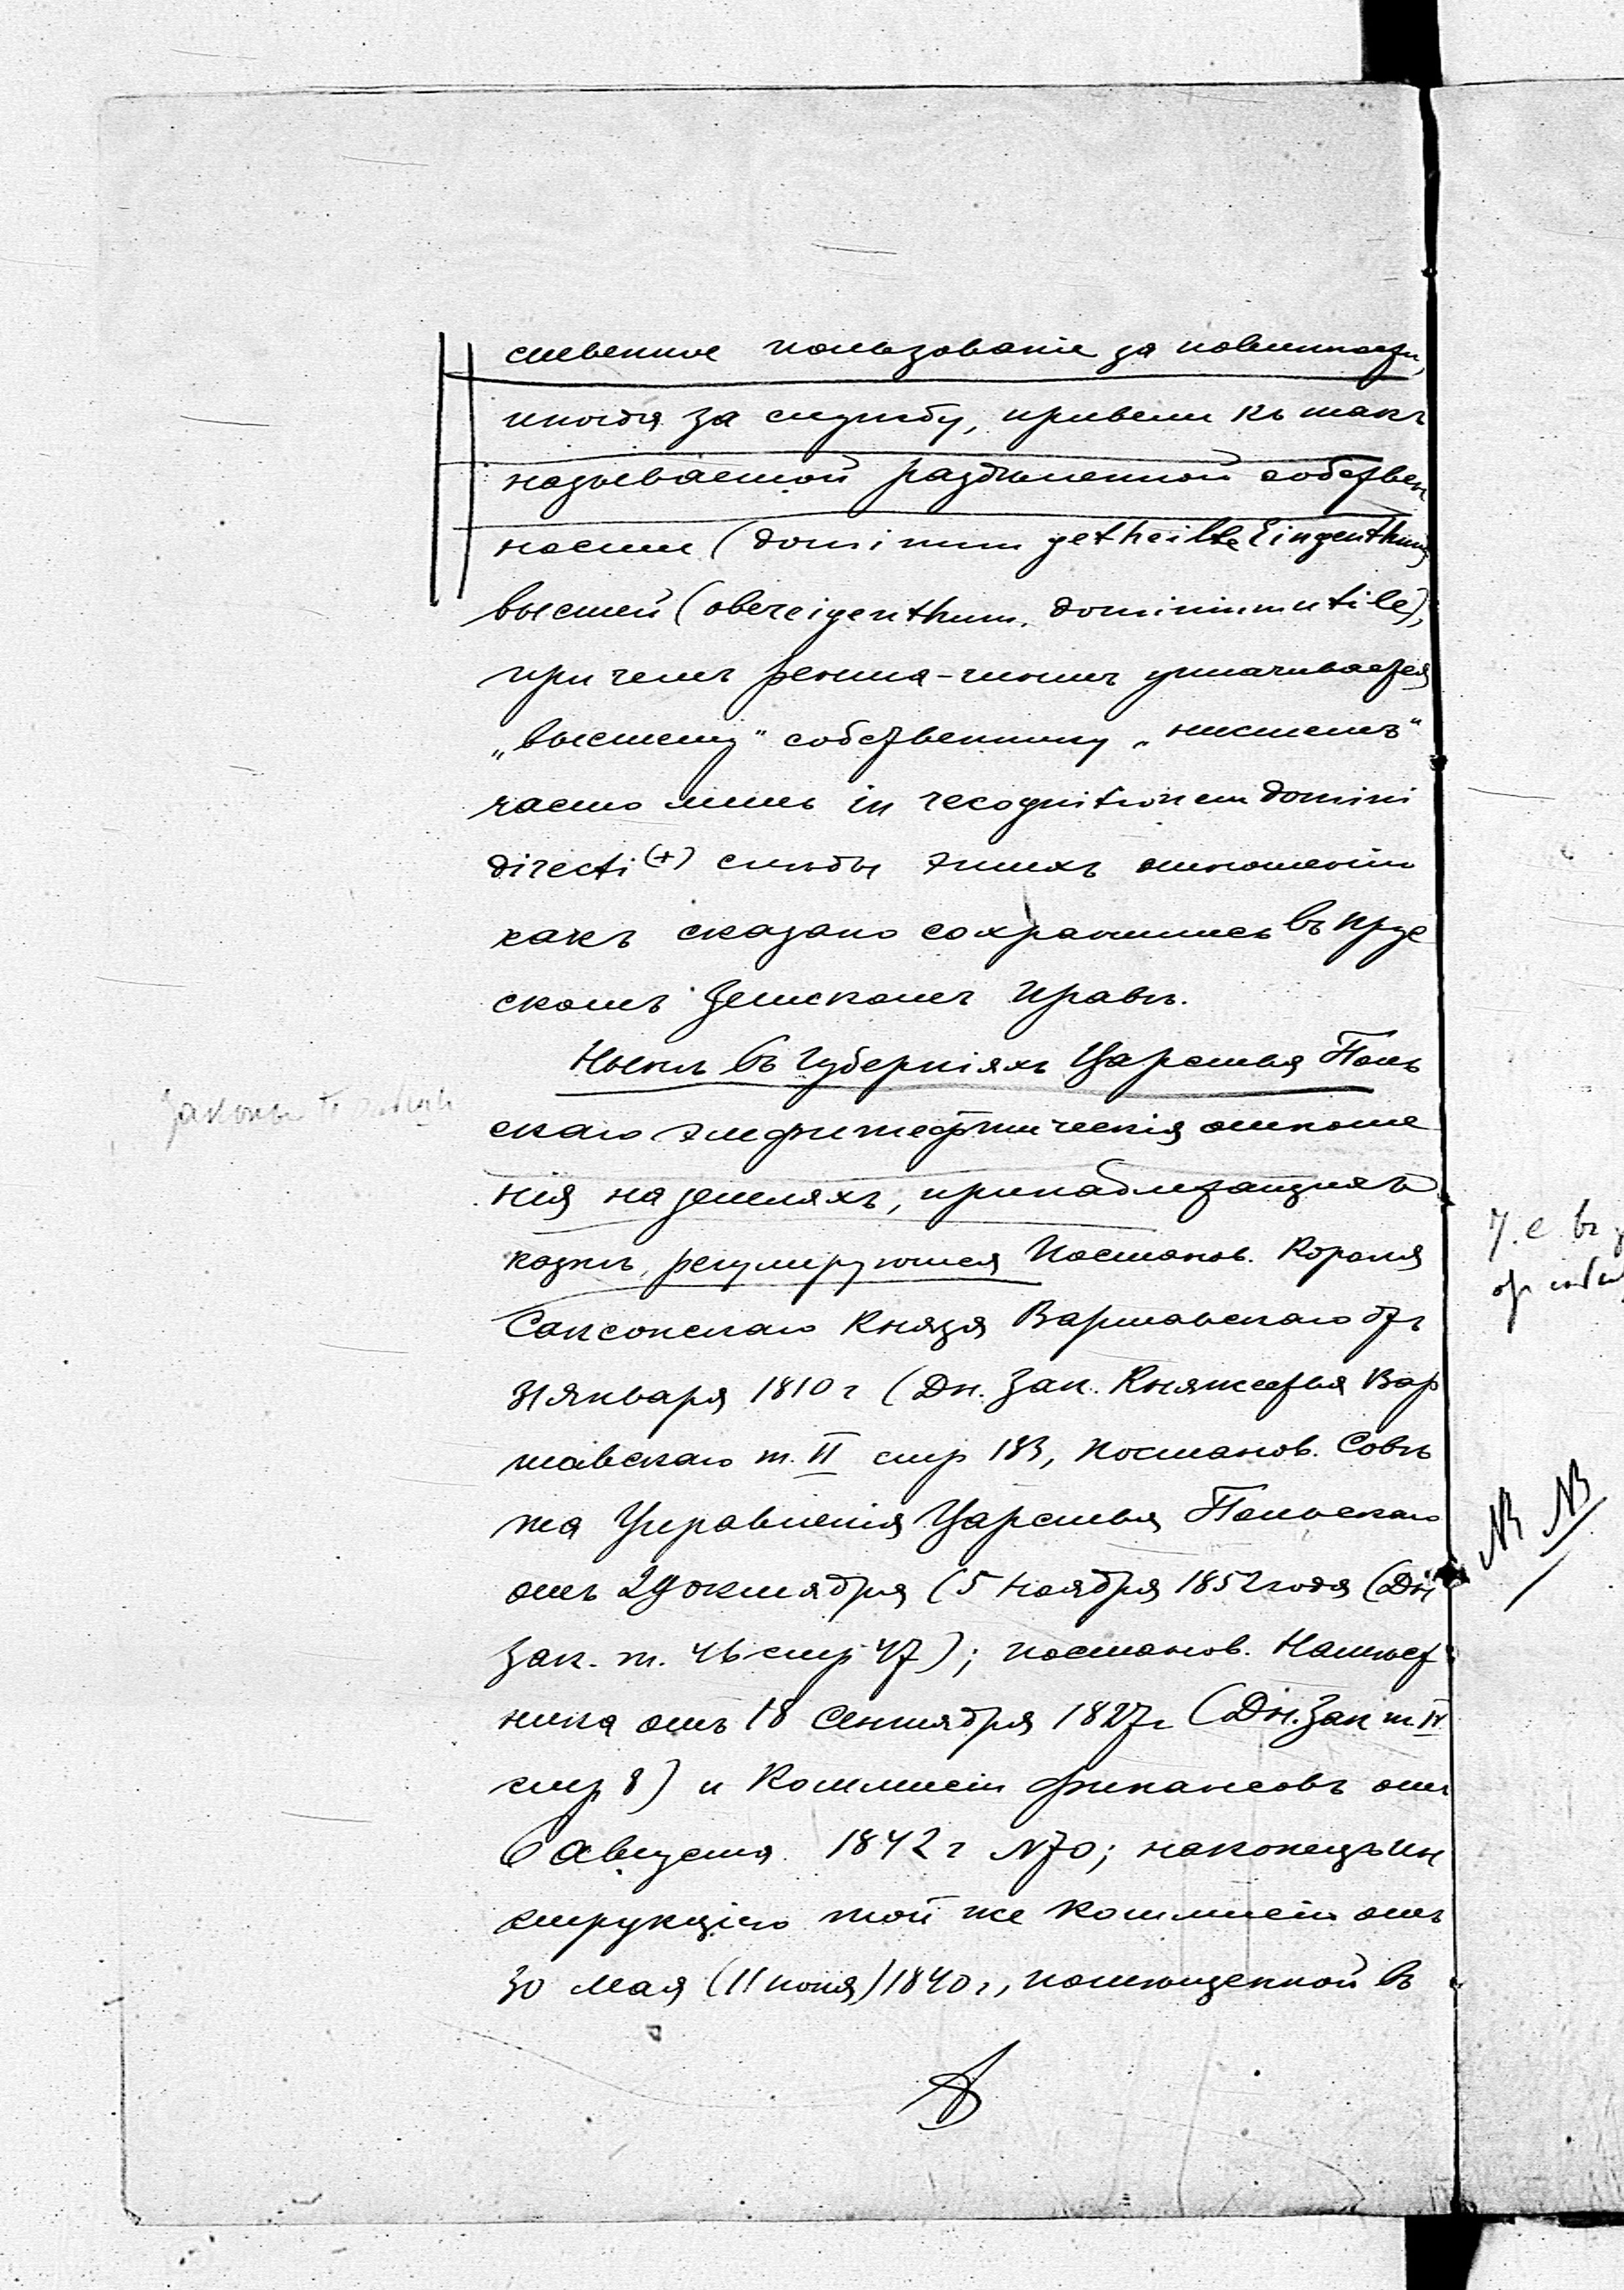 ственное пользованіе за повинности,
иногда за службу, привели къ такъ
называемой раздѣленной собствен
ности (dominium getheilte Eingenthum
высшей (obereigenthum, dominium utile),
при чемъ рента-чиншъ уплачивается
„высшему" собственнику „низшемъ"
часто лишь in recognitionem domini
directi (+) слѣды этихъ отношеній
какъ сказано сохранились въ прус
скомъ Земскомъ Правѣ.
Нынѣ въ Губерніяхъ Царства Поль
Законы
скаго эмфитевтическія отноше
нія на земляхъ, принадлежащихъ
казнѣ, регулируются Постанов. Короля
Саксонскаго Князя Варшавскаго отъ
31 Января 1810 г (Дн. Зак. Княжества Вар
шавскаго т. II стр 183, постанов. Совѣ
та Управленія Царства Польскаго
отъ 24 октября (5 Ноября 1852 года (Дн
Зак. т. 46 стр 47); постанов. Намѣст
ника отъ 18 Сентября 1827 г (Дн. Зак т. IV
стр 8) и Коммисіи финансовъ отъ
6 Августа 1842 г N 70; наконецъ ин
струкціею той же Коммисіи отъ
30 Мая (11 іюня) 1840 г, помѣщенной въ
Т. е въ
NB NB